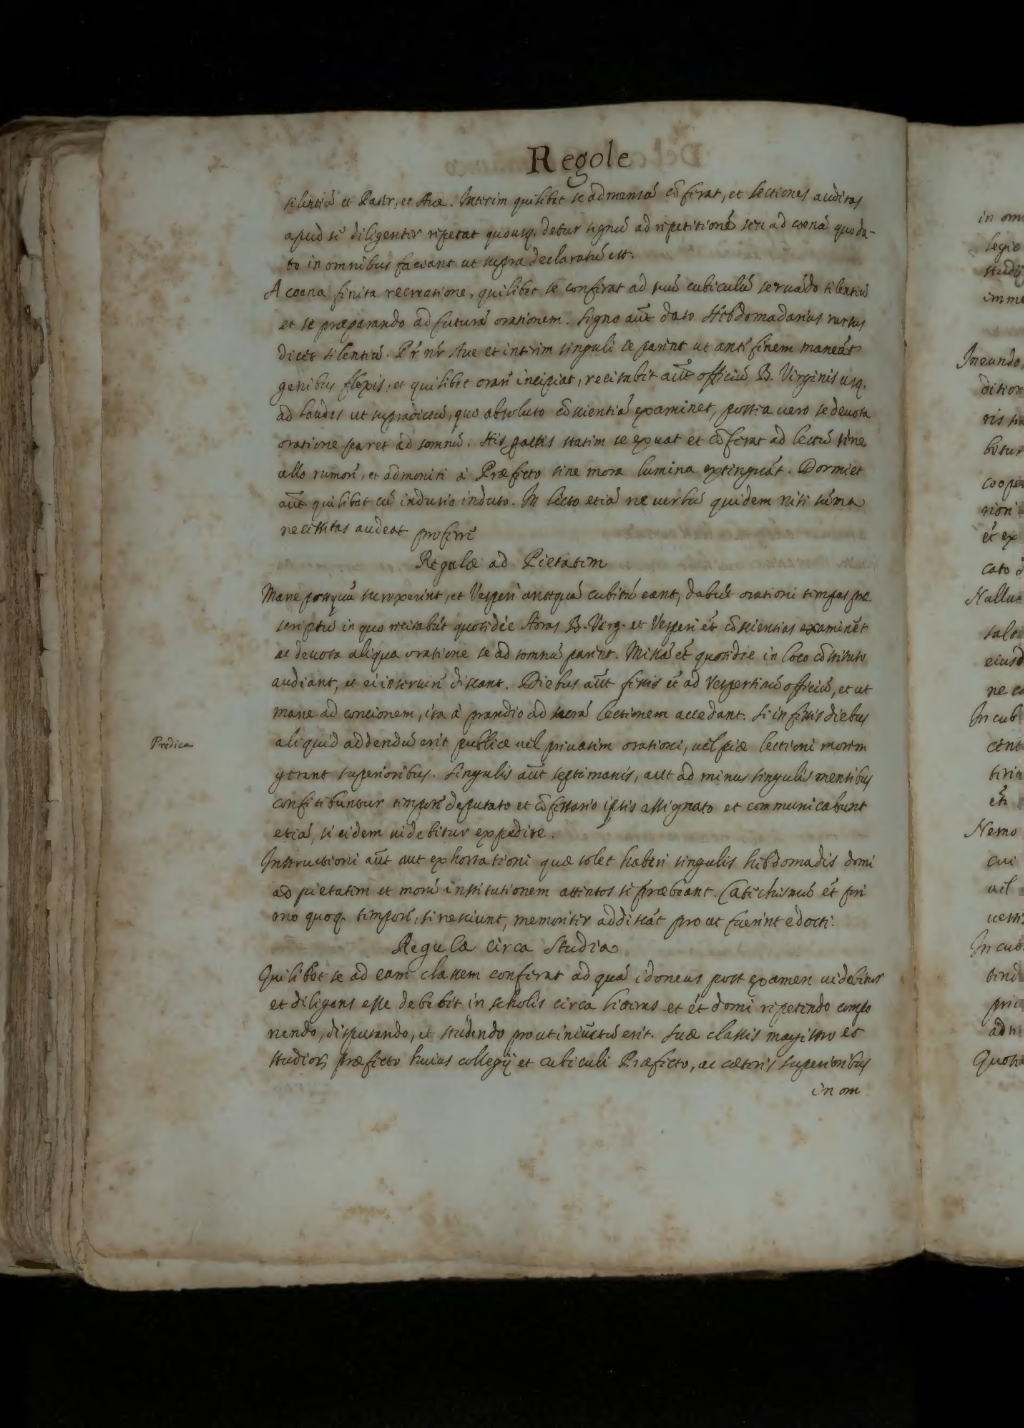 Regole
silentiũ et Pater, et Aue. Interim quilibet se ad mensã cõferat, et lectiones auditas
apud se diligenter repetat quousq. detur signũ ad repetitionẽ seu ad coenã quo da-
to in omnibus faciant ut supra declaratũ est.
A coena finita recreatione, quilibet se conferat ad suũ cubiculũ seruãdo silentiũ
et se præparando ad futurã orationem. Signo aũt dato Hebdomadarius rursus
dicet silentiũ. Pr̃ nr̃ Aue et interim singuli se parent ut antẽ finem maneãt
genibus flexis, et quilibet orarẽ incipiat, recitabit aũt officiũ B. Virginis usq.
ad laudes ut supradictũ, quo absoluto cõscientiã examinet, postea uero se deuota
oratione paret ad somnũ. His pactis statim se exuat et cõferat ad lectũ sine
ullo rumorẽ, et admoniti à Præfecto sine mora lumina extinguãt. Dormiet
aũt quilibet cũ indusio induto. In lecto etiã ne uerbũ quidem nisi sũma
necessitas audeat proferrẽ
Regulæ ad Pietatem
Mane postquã surrexerint, et Vesperẽ antequã cubitũ eant, dabũt orationi tempus præ
scriptũ in quo recitabũt quotidie Horas B. Verg. et Vesperi ẽt cõscientias examinẽt
ac deuota aliqua oratione se ad somnũ parent. Missã ẽt quotidie in loco cõstituto
audiant, et ei inseruirẽ discant. Diebus aũt festis ẽt ad Vespertinũ officiũ, et ut
mane ad concionem, ita à prandio ad sacrã lectionem accedant. Si in festis diebus
Predica
aliquid addendũ erit publicæ uel priuatim orationi, uel piæ lectioni morem
gerant superioribus. Singulis aũt septimanis, aut ad minus singulis mensibus
confitebuntur temporẽ deputato et cõfessario ipsis assignato et communicabunt
etiã, si eidem uidebitur expedire.
Instructioni aũt aut exhortationi quæ solet haberi singulis hebdomadis domi
ad pietatem et morũ institutionem attentos se præbeant. Catechismũ ẽt pri
mo quoq. temporẽ, si nesciunt, memoriter addiscãt prout fuerint edocti.
Regulæ circa Studia
Quilibet se ad eam classem conferat ad quã idoneus post examen uidebitur
et diligens esse debebit in scholis circa literas et ẽt domi repetendo compo
nendo, disputando, et studendo prout iniũctũ erit. Suæ classis magistro et
studior. præfecto huius collegij et cubiculi Præfecto, ac cæteris superioribus
in om
in om
legie
studij
imme
Ineundo,
dition
ris
botur
coope
cato
Nullus
salo
eiusd
ne c
In cub
cent
Nemo
cui
uel
In cub
tend
Quotid